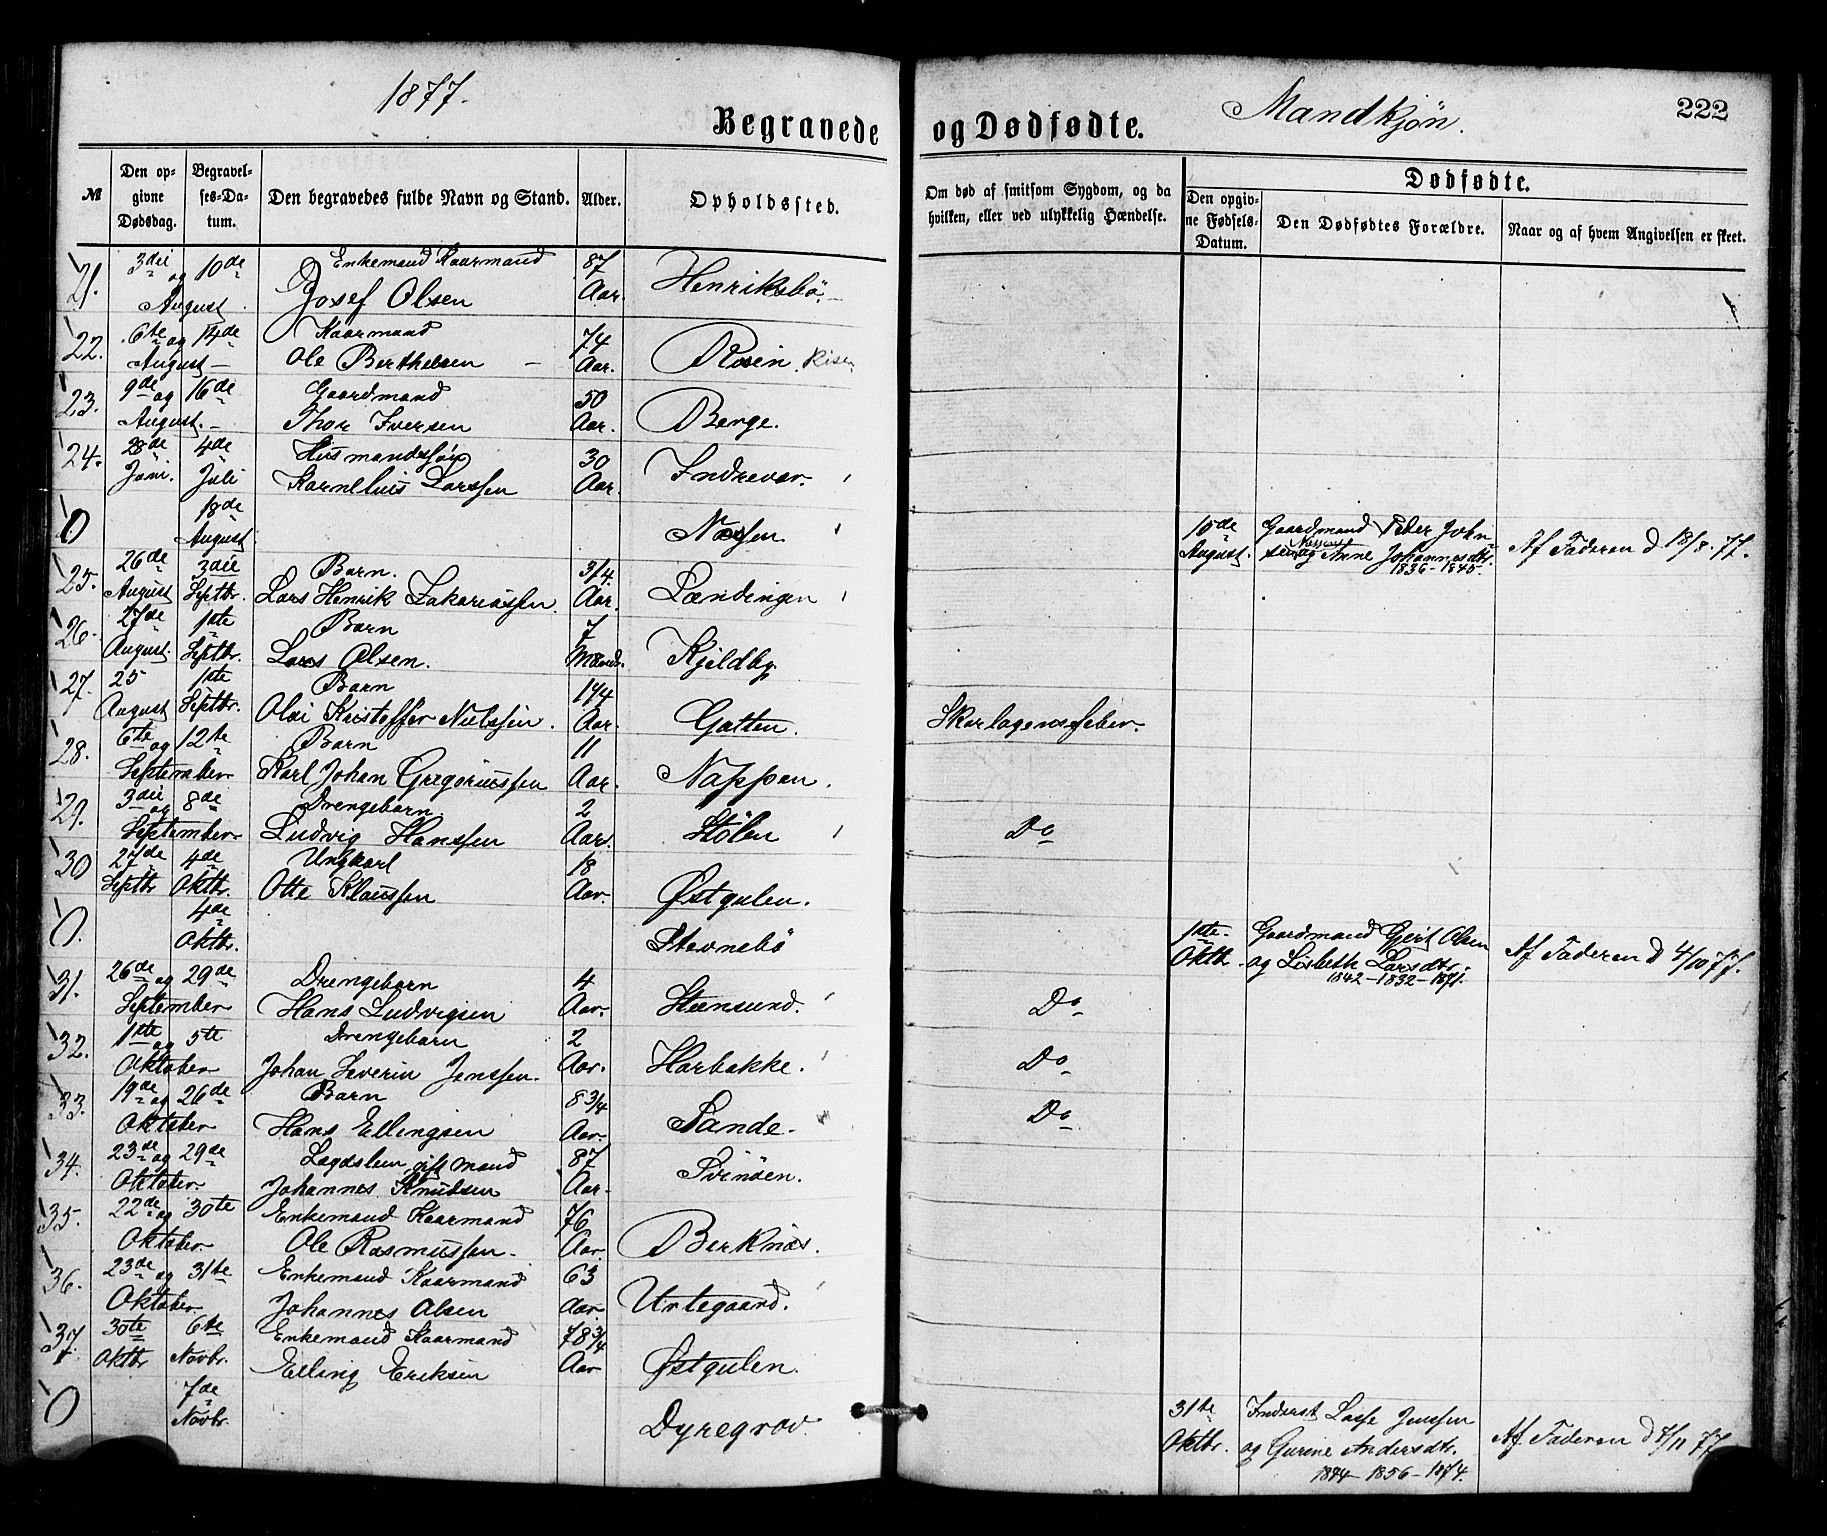 1877.
Begravede
og Dødfødte.
Mandkjøn.
222
№
Den opgivne Dødsdag.
Begravelses-Datum.
Den begravedes fulde Navn og Stand.
Alder.
Opholdssted.
Om død af smitsom Sygdom, og da hvilken, eller ved ulykkelig Hændelse.
Dødfødte.
Den opgivne Fødsels-Datum.
Den Dødfødtes Forældre.
Naar og af hvem Angivelsen er skeet.
21. 3die og 10de Enkemand Kaarmand 87
August Josef Olsen Aar. Henriksbö.
22. 6te og 14de Kaarmand 74
August Ole Berthelsen Aar. Risin Risn
23. 9de og 16de Gaardmand 50
August. Thor Iversen Aar. Berge.
24. 28de 4de Husmandssön 30
Juni. Juli Kornelius Larssen Aar. Indrevær.
0 18de
August Næssen
10de Gaardmand Peder John-
August. sen og Anne Johannesdtr. Af Faderen d 18/8.77.
1836-1845-
25. 26de 3die Barn. 3/4
August Septbr. Lars Henrik Sakariassen. Aar. Lændingen
26. 27de 1ste Barn 7
August. Septbr. Lars Olsen. Maand. Kjeldby
27. 25 1ste Barn 1 1/4
August Septbr. Olai Kristoffer Nielssen. Aar. Gatten. Skarlagensfeber.
28. 6te og 12te Barn 11
September Karl Johan Gregoriussen Aar. Nappen.
29. 3die og 8de Drengebarn 2
September Ludvig Hanssen Aar. Stölen Do
30 27de 4de Ungkarl 18
Septbr Oktbr. Otte Klaussen Aar. Østgulen.
0. 4de
Oktbr. Stevnebö
1ste. Gaardmand Gjert Olsen
Oktbr. og Lisbeth Larsdtr. Af Faderen d 4/10 77.
1842-1832-1871.
31. 26de og 29de Drengebarn 4
September Hans Ludvigsen Aar. Steensund. Do
32. 1ste og 5te Drengebarn 2
Oktober Johan Severin Jenssen. Aar. Harbakke. Do
33. 19de og 26de Barn 8 3/4
Oktober Hans Ellingsen Aar. Sande. Do
34. 23de og 29de Lægdslem, gift Mand 87
Oktober. Johannes Knudsen Aar. Svinöen.
35. 22de og 30te Enkemand Kaarmand 76
Oktober. Ole Rasmussen. Aar. Berknæs.
36. 23de og 31te Enkemand Kaarmand 63
Oktober. Johannes Olsen Aar. Urtegaard.
37. 30te 6te Enkemand Kaarmand 78 3/4
Oktbr Novbr. Elling Eriksen Aar Østgulen.
0 7de
Novbr. Dyregrov.
31te Inderst Lasse Jenssen
Oktbr. og Gurine Andersdtr. Af Faderen d 7/11 77
1844-1856-1874.